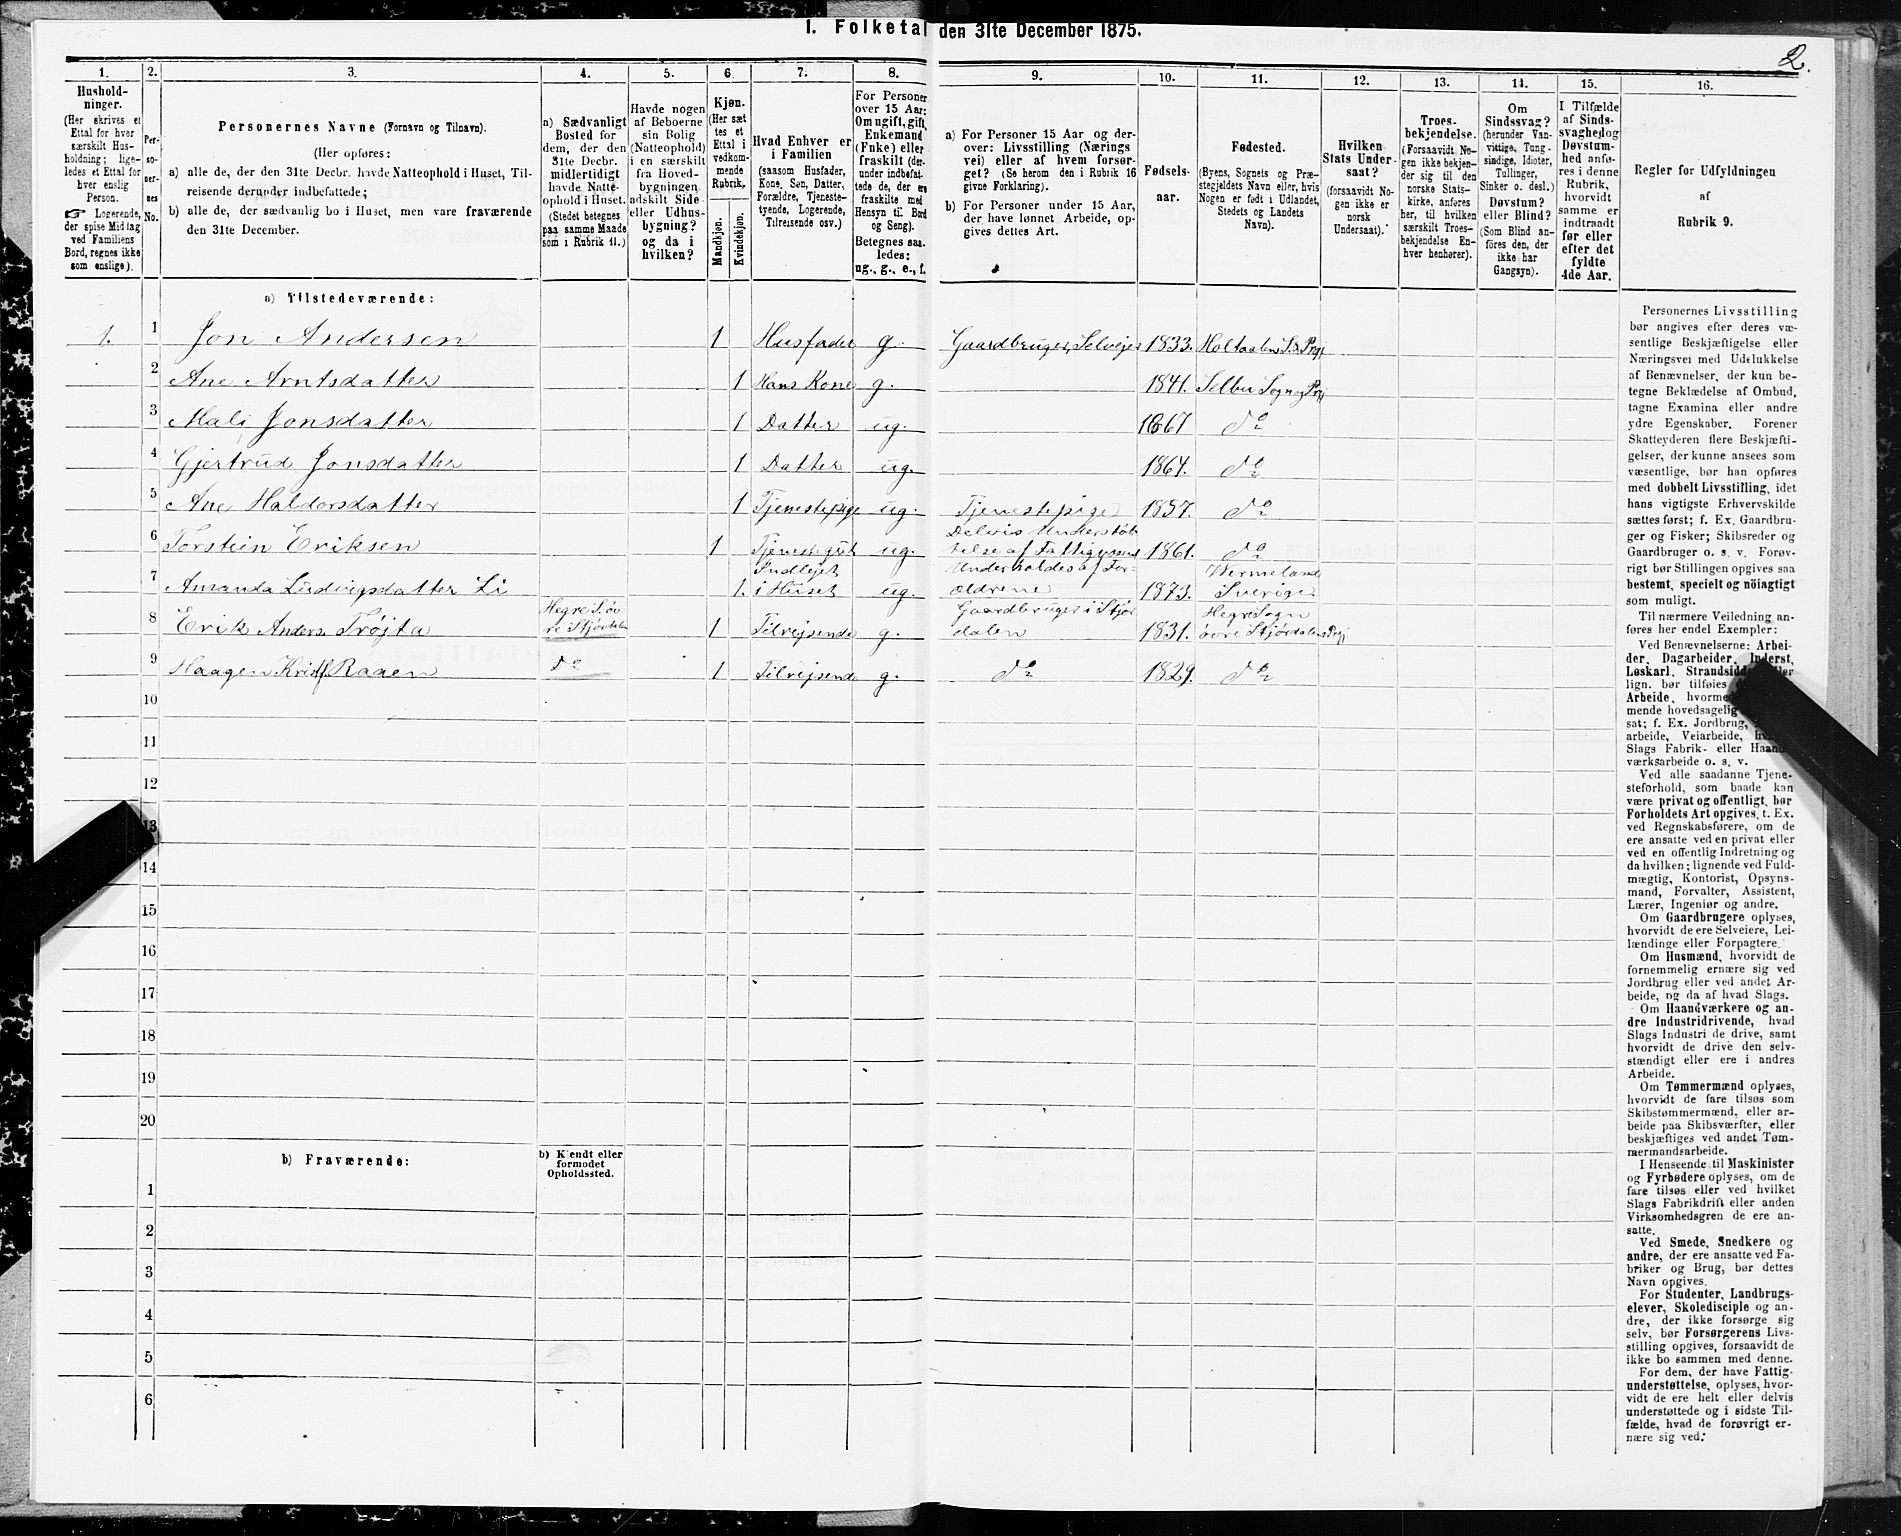 1. Folketal den 31te December 1875.
2.
1.
Hushold-
ninger.
(Her skrives et
Ettal for hver
særskilt Hus-
holdning; lige-
ledes et Ettal for
hver enslig
Person.
☞ Logerende,
der spise Middag
ved Familiens
Bord, regnes ikke
som enslige).
2.
Per-
so-
ner-
nes
No.
3.
Personernes Navne (Fornavn og Tilnavn).
(Her opføres:
a) alle de, der den 31te Decbr. havde Natteophold i Huset, Til-
reisende derunder indbefattede;
b) alle de, der sædvanlig bo i Huset, men vare fraværende
den 31te December.
4.
a) Sædvanligt
Bosted for
dem, der den
31te Decbr.
midlertidigt
havde Natte-
ophold i Huset.
(Stedet betegnes
paa samme Maade
som i Rubrik 11.)
5.
Havde nogen
af Beboerne
sin Bolig
(Natteophold)
i en særskilt
fra Hoved-
bygningen
adskilt Side-
eller Udhus-
bygning?
og da i
hvilken?
6.
Kjøn.
(Her sæt
tes et
Ettal i
vedkom-
mende
Rubrik.
Mandkjøn.
Kvindekjøn.
7.
Hvad Enhver er
i Familien
(saasom Husfader,
Kone, Søn, Datter,
Forældre, Tjeneste-
tyende, Logerende,
Tilreisende osv.)
8.
For Personer
over 15 Aar:
Om ugift, gift,
Enkemand
(Enke) eller
fraskilt (der-
under indbefat-
tede de, der ere
fraskilte med
Hensyn til Bord
og Seng).
Betegnes saa-
ledes:
ug., g., e., f.
9.
a) For Personer 15 Aar og der-
over: Livsstilling (Nærings
vei) eller af hvem forsør-
get? (Se herom den i Rubrik 16
givne Forklaring).
b) For Personer under 15 Aar,
der have lønnet Arbeide, op-
gives dettes Art.
10.
Fødsels-
aar.
11.
Fødested.
(Byens, Sognets og Præ-
stegjeldets Navn eller, hvis
Nogen er født i Udlandet,
Stedets og Landets
Navn).
12.
Hvilken
Stats Under-
saat?
(forsaavidt No-
gen ikke er
norsk
Undersaat).
13.
Troes-
bekjendelse.
(Forsaavidt No-
gen ikke bekjen-
der sig til den
norske Stats-
kirke, anføres
her, til hvilken
særskilt Troes-
bekjendelse En-
hver henhører).
14.
Om
Sindssvag?
(herunder Van-
vittige, Tung-
sindige, Idioter,
Tullinger,
Sinker o. desl.)
Døvstum?
eller Blind?
(Som Blind an-
føres den, der
ikke har
Gangsyn).
15.
I Tilfælde
af Sinds-
svaghed og
Døvstum-
hed anfø-
res i denne
Rubrik,
hvorvidt
samme er
indtraadt
før eller
efter det
fyldte
4de Aar.
16.
Regler for Udfyldningen
af
Rubrik 9.
a) Tilstedeværende:
1. 1 Jon Andersen 1 Husfader g. Gaardbruger, Selveier 1833. Holtaalens S. & Prgj
2 Ane Arntsdatter 1 Hans Kone g. 1841. Selbu Sogn og Prgj
3 Mali Jonsdatter 1 Datter ug. 1867 do
4 Gjertrud Jonsdatter 1 Datter ug. 1864. do
5 Ane Haldorsdatter 1 Tjenestepige ug. Tjenestepige 1857. do
6 Torstein Eriksen 1 Tjenestegut ug. Delvis Understøt-
telse af Fattigvæsenet 1861. do
7 Amanda Ludvigsdatter Li 1. Indlejet
i Huset ug. Underholdes af For-
ældrene 1873. Wermeland
Sverige
8 Erik Anders. Trøjta Hegre S. øv
re Stjørdalen 1 Tilrejsende g. Gaardbruger i Stjør
dalen 1831. Hegre Sogn
øvre Stjørdalens Prgj
9 Haagen Krist. Raaen do 1 Tilrejsende g. do 1829. do
10
11
12
13
14
15
16
17
18
19
20
b) Fraværende:
b) Kjendt eller
formodet
Opholdssted.
1
2
3
4
5
6
Personernes Livsstilling
bør angives efter deres væ-
sentlige Beskjæftigelse eller
Næringsvei med Udelukkelse
af Benævnelser, der kun be-
tegne Beklædelse af Ombud,
tagne Examina eller andre
ydre Egenskaber. Forener
Skatteyderen flere Beskjæfti-
gelser, der kunne ansees som
væsentlige, bør han opføres
med dobbelt Livsstilling, idet
hans vigtigste Erhvervskilde
sættes først; f. Ex. Gaardbru-
ger og Fisker; Skibsreder og
Gaardbruger o. s. v. Forøv-
rigt bør Stillingen opgives saa
bestemt, specielt og nöiagtigt
som muligt.
Til nærmere Veiledning an-
føres her endel Exempler:
Ved Benævnelserne: Arbei-
der, Dagarbeider, Inderst,
Løskarl, Strandsidder eller
lign. bør tilføies
Arbeide, hvormed
mende hovedsagelig
sat; f. Ex. Jordbrug,
arbeide, Veiarbeide,
Slags Fabrik- eller Haand-
værksarbeide o. s. v.
Ved alle saadanne Tjene-
steforhold, som baade kan
være privat og offentligt, bør
Forholdets Art opgives, t. Ex.
ved Regnskabsførere, om de
ere ansatte ved en privat eller
ved en offentlig Indretning og
da hvilken; lignende ved Fuld-
mægtig, Kontorist, Opsyns-
mand, Forvalter, Assistent,
Lærer, Ingeniør og andre.
Om Gaardbrugere oplyses,
hvorvidt de ere Selveiere, Lei-
lændinge eller Forpagtere.
Om Husmænd, hvorvidt de
fornemmelig ernære sig ved
Jordbrug eller ved andet Ar-
beide, og da af hvad Slags.
Om Haandværkere og an-
dre Industridrivende, hvad
Slags Industri de drive, samt
hvorvidt de drive den selv-
stændigt eller ere i andres
Arbeide.
Om Tømmermænd oplyses,
hvorvidt de fare tilsøs som
Skibstømmermænd, eller ar-
beide paa Skibsværfter, eller
beskjæftiges ved andet Tøm-
mermandsarbeide.
I Henseende til Maskinister
og Fyrbødere oplyses, om de
fare tilsøs eller ved hvilket
Slags Fabrikdrift eller anden
Virksomhedsgren de ere an-
satte.
Ved Smede, Snedkere og
andre, der ere ansatte ved Fa-
briker og Brug, bør dettes
Navn opgives.
For Studenter, Landbrugs-
elever, Skoledisciple og an-
dre, der ikke forsørge sig
selv, bør Forsørgerens Livs-
stilling opgives, forsaavidt de
ikke bo sammen med denne.
For dem, der have Fattig-
understøttelse, oplyses, hvor-
vidt de ere helt eller delvis
understøttede og i sidste Til-
fælde, hvad de forøvrigt er-
nære sig ved.